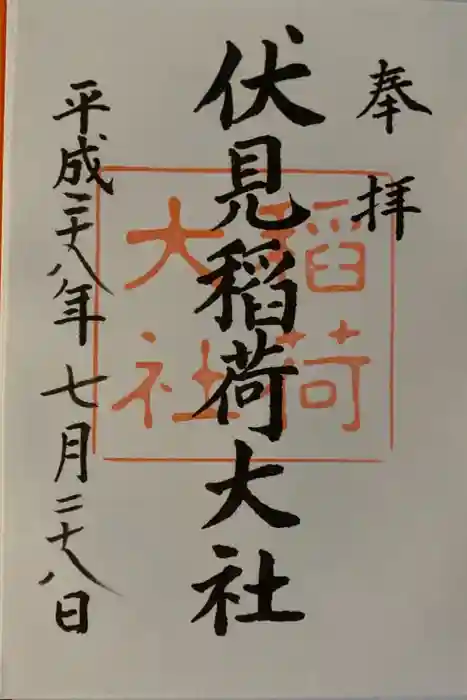 奉拝
伏見稲荷大社
稲荷大社
平成二十八年七月二十八日